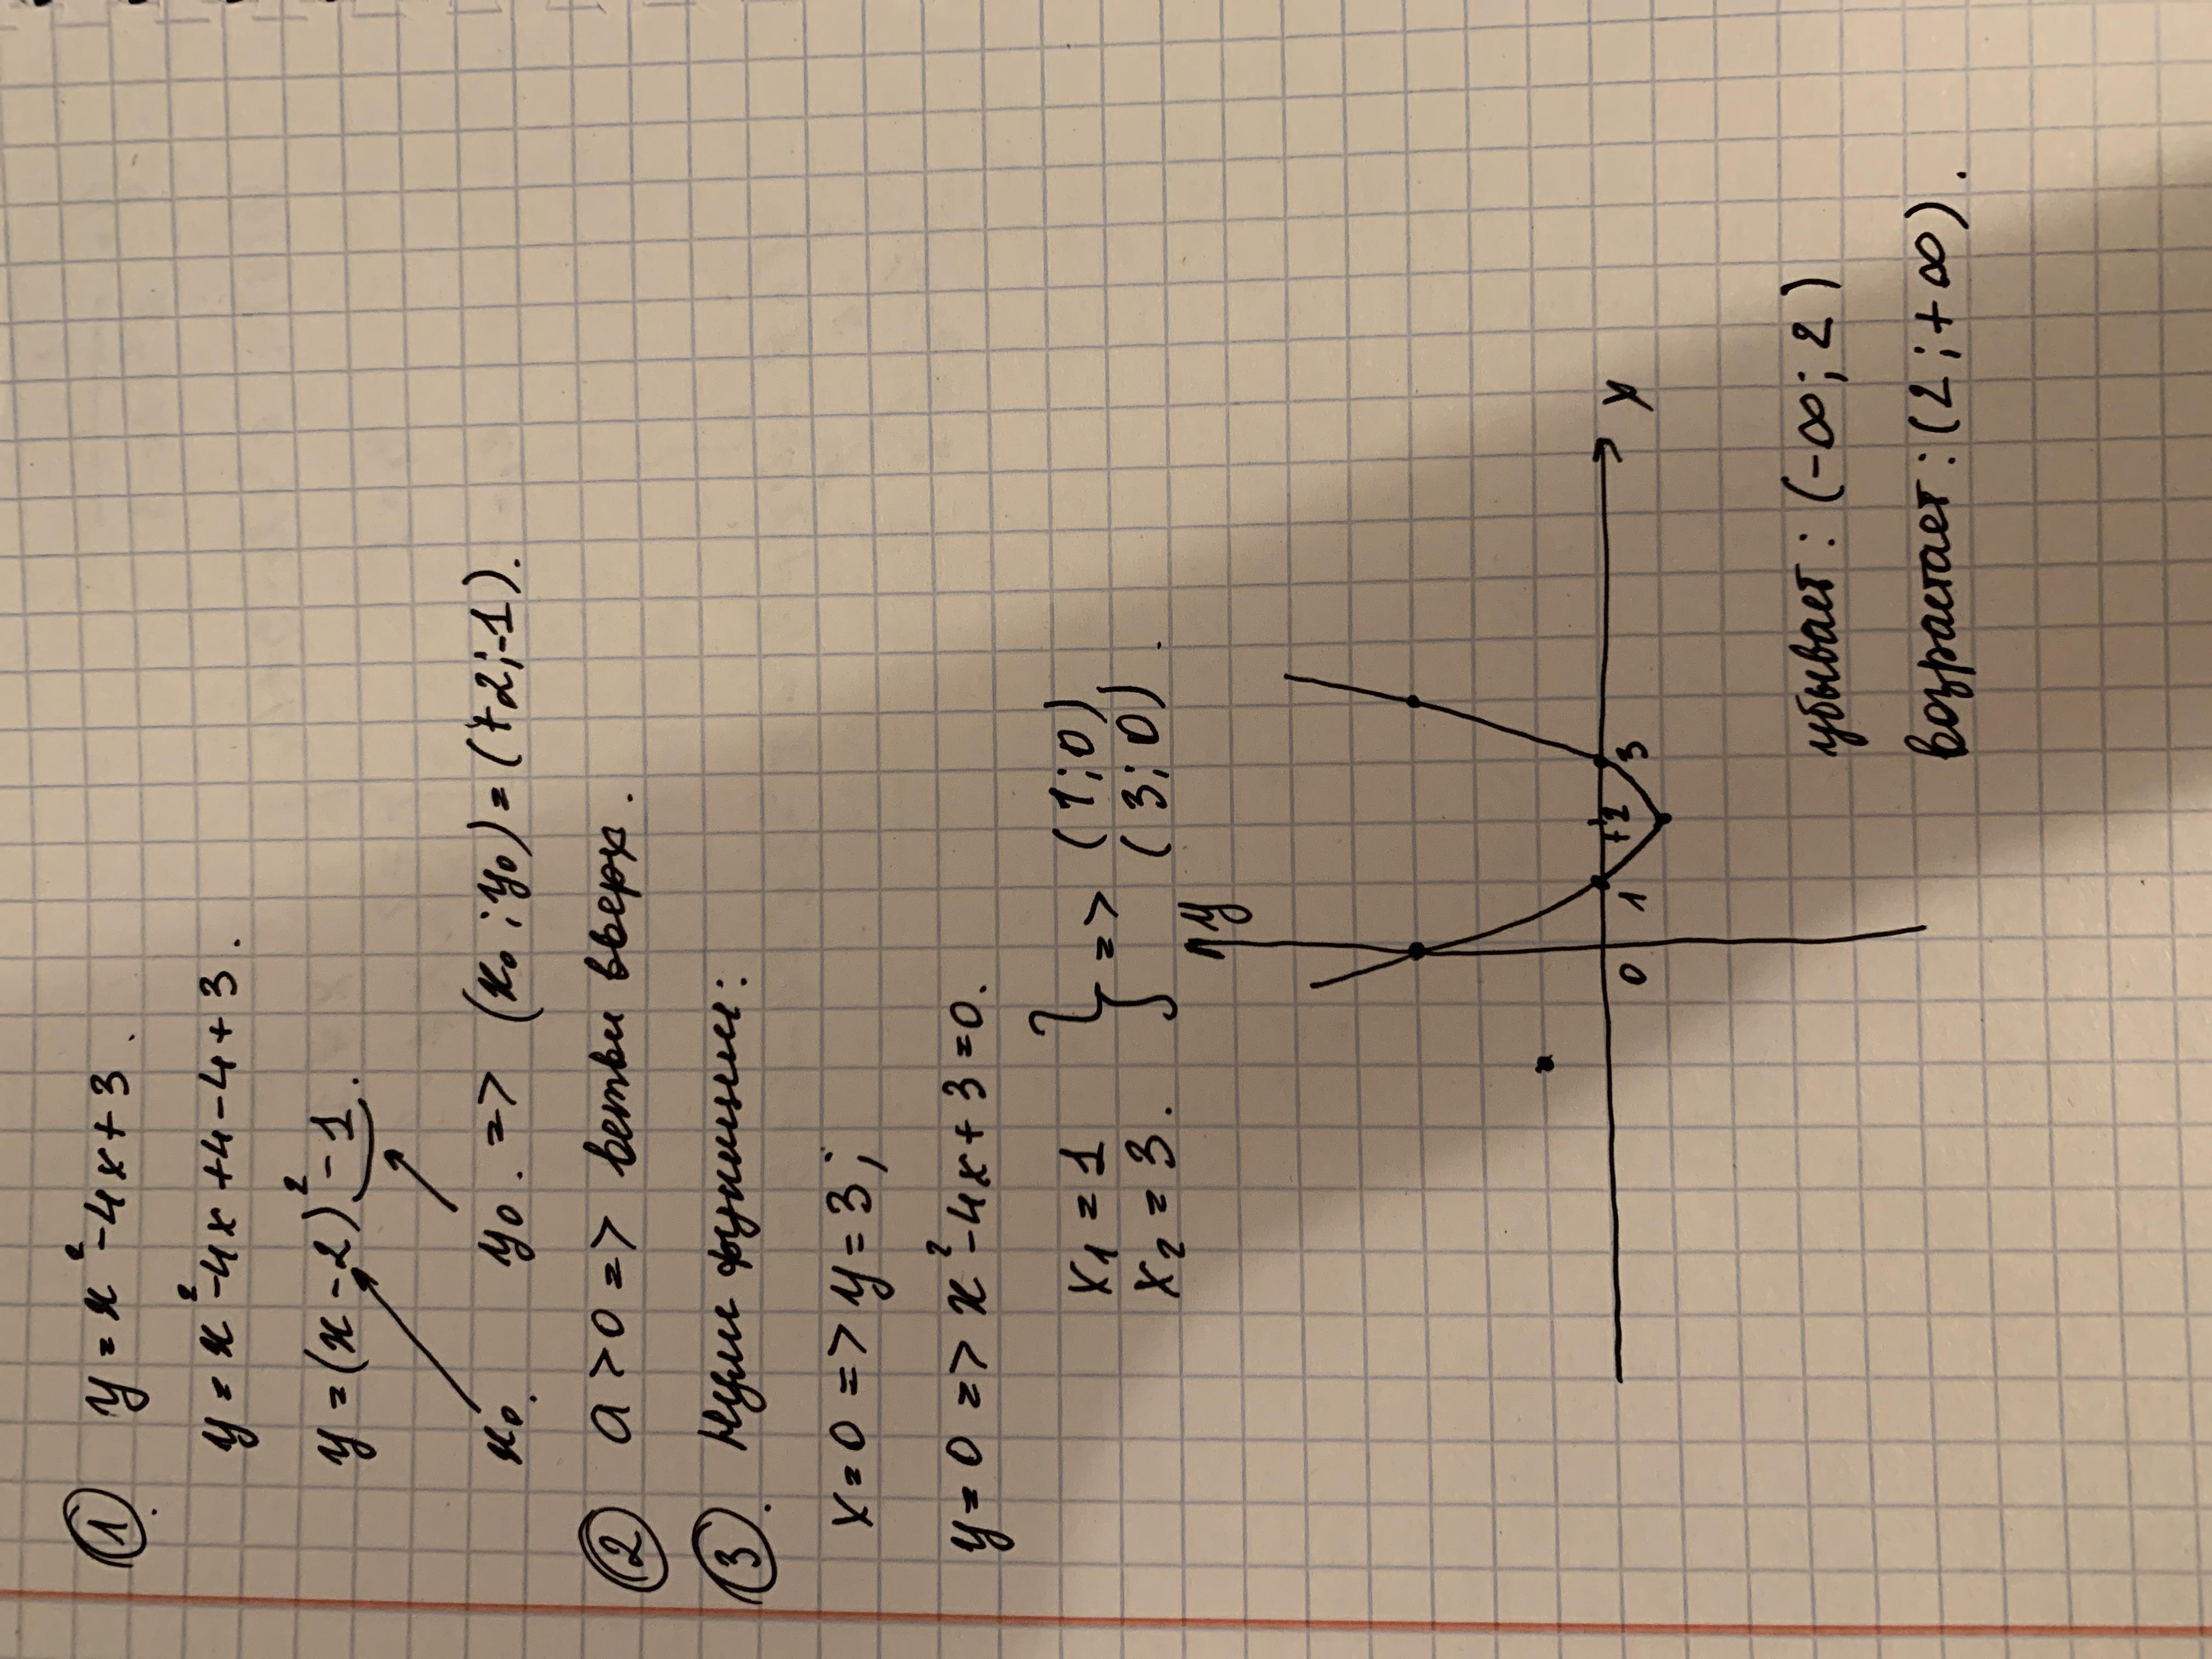 ① y = x² - 4x + 3.
y = x² - 4x + 4 - 4 + 3.
y = (x - 2)² - 1.
x₀. y₀. => (x₀; y₀) = (+2; -1).
② a > 0 => ветви вверх.
③. Нули функции:
x = 0 => y = 3;
y = 0 => x² - 4x + 3 = 0.
x₁ = 1
x₂ = 3.
} => (1; 0)
(3; 0).
y
x
0 1 +2 3
убывает: (-∞; 2)
возрастает: (2; +∞).